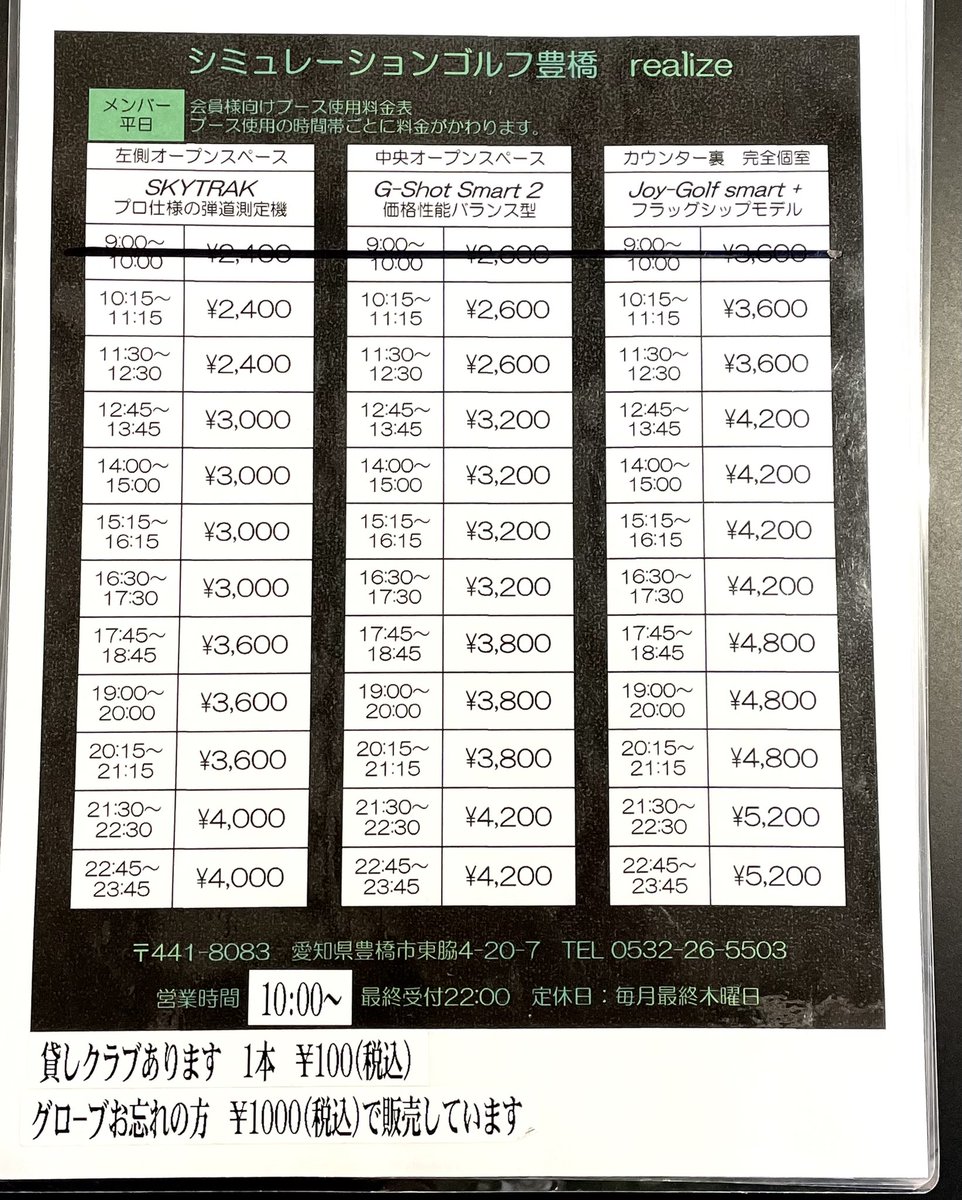 シミュレーションゴルフ豊橋 realize
メンバー
平日
会員様向けブース使用料金表
ブース使用の時間帯ごとに料金がかわります。
左側オープンスペース
SKYTRAK
プロ仕様の弾道測定機
9:00～10:00 ¥2,400
10:15～11:15 ¥2,400
11:30～12:30 ¥2,400
12:45～13:45 ¥3,000
14:00～15:00 ¥3,000
15:15～16:15 ¥3,000
16:30～17:30 ¥3,000
17:45～18:45 ¥3,600
19:00～20:00 ¥3,600
20:15～21:15 ¥3,600
21:30～22:30 ¥4,000
22:45～23:45 ¥4,000
中央オープンスペース
G-Shot Smart 2
価格性能バランス型
9:00～10:00 ¥2,600
10:15～11:15 ¥2,600
11:30～12:30 ¥2,600
12:45～13:45 ¥3,200
14:00～15:00 ¥3,200
15:15～16:15 ¥3,200
16:30～17:30 ¥3,200
17:45～18:45 ¥3,800
19:00～20:00 ¥3,800
20:15～21:15 ¥3,800
21:30～22:30 ¥4,200
22:45～23:45 ¥4,200
カウンター裏 完全個室
Joy-Golf smart +
フラッグシップモデル
9:00～10:00 ¥3,600
10:15～11:15 ¥3,600
11:30～12:30 ¥3,600
12:45～13:45 ¥4,200
14:00～15:00 ¥4,200
15:15～16:15 ¥4,200
16:30～17:30 ¥4,200
17:45～18:45 ¥4,800
19:00～20:00 ¥4,800
20:15～21:15 ¥4,800
21:30～22:30 ¥5,200
22:45～23:45 ¥5,200
〒441-8083 愛知県豊橋市東脇4-20-7 TEL 0532-26-5503
営業時間 10:00～ 最終受付22:00 定休日：毎月最終木曜日
貸しクラブあります 1本 ¥100(税込)
グローブお忘れの方 ¥1000(税込)で販売しています